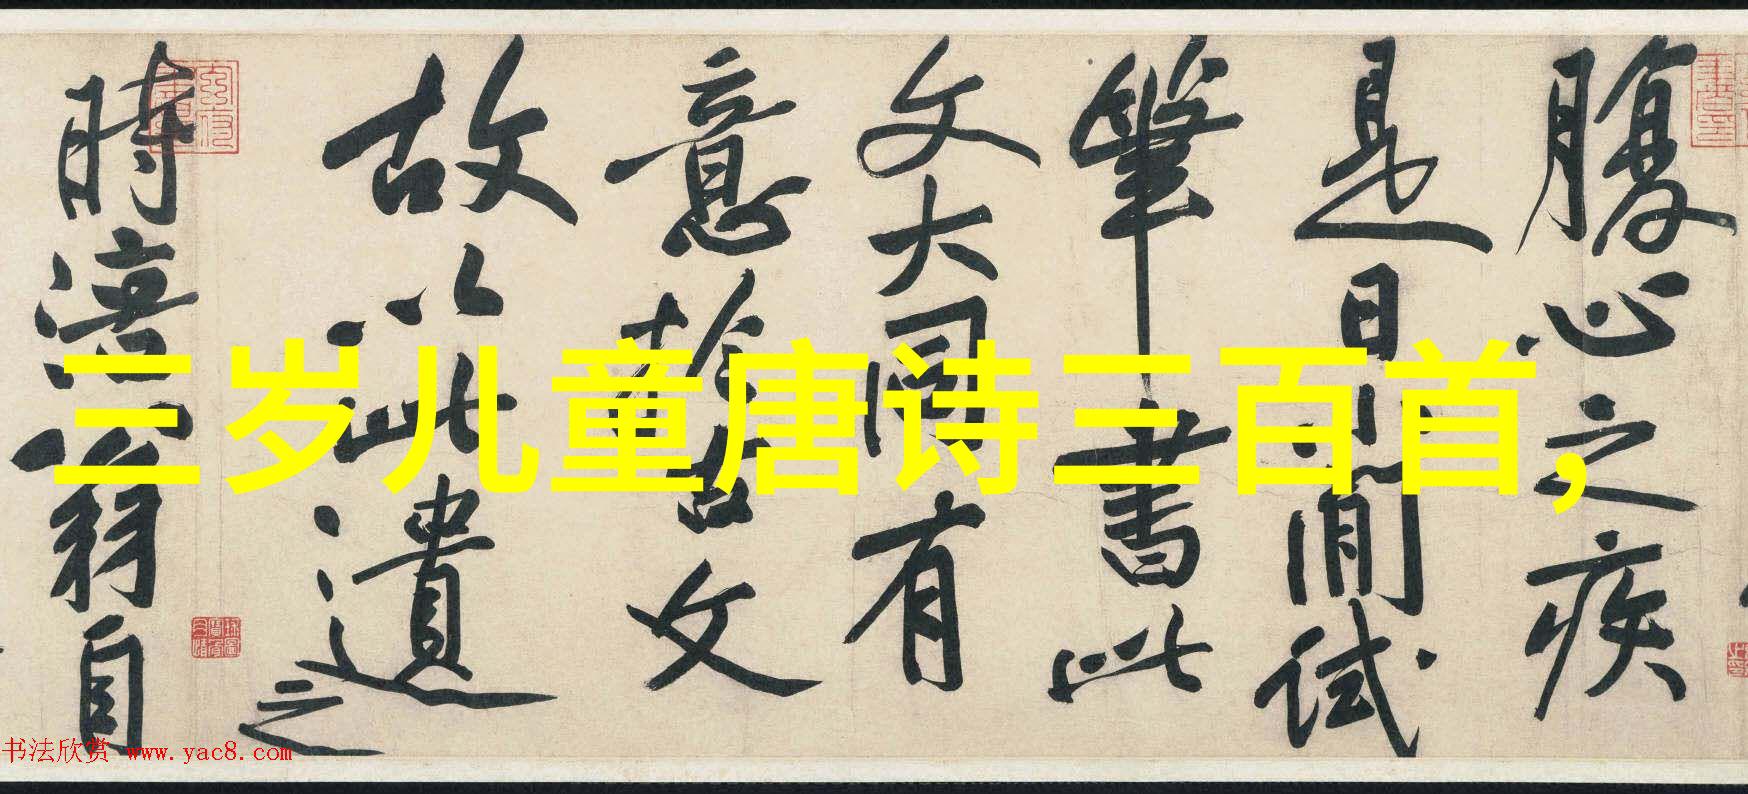 腹心之疾
是日小閒試
筆書此
文大同有
意於古文
故以此遺之
時涪翁自
三岁儿童唐诗三百首,
书法欣赏 www.yac8.com